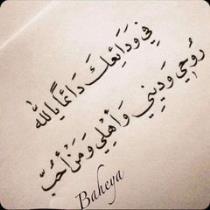 فِي وَدَائِعِكَ دَائِمًا يَا اللّٰه
رُوحِي وَدِينِي وَأَهْلِي وَمَنْ أُحِبّ
Baheya